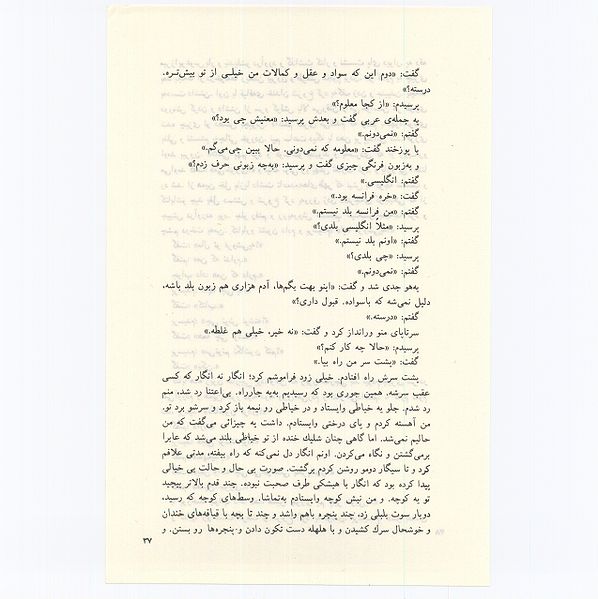 گفت: «دوم این که سواد و عقل و کمالات من خیلی از تو بیش‌تره.
درسته؟»
پرسیدم: «از کجا معلوم؟»
یه جمله‌ی عربی گفت و بعدش پرسید: «معنیش چی بود؟»
گفتم: «نمی‌دونم.»
با پوزخند گفت: «معلومه که نمی‌دونی. حالا ببین چی‌می‌گم.»
و به‌زبون فرنگی چیزی گفت و پرسید: «به‌چه زبونی حرف زدم؟»
گفتم: انگلیسی.»
گفت: «خره فرانسه بود.»
گفتم: «من فرانسه بلد نیستم.»
پرسید: «مثلاً انگلیسی بلدی؟»
گفتم: «اونم بلد نیستم.»
پرسید: «چی بلدی؟»
گفتم: «نمی‌دونم.»
یه‌هو جدی شد و گفت: «اینو بهت بگم‌ها، آدم هزاری هم زبون بلد باشه،
دلیل نمی‌شه که باسواده. قبول داری؟»
گفتم: «درسته.»
سرتاپای منو ورانداز کرد و گفت: «نه خیر، خیلی هم غلطه.»
پرسیدم: «حالا چه کار کنم؟»
گفت: «پشت سر من راه بیا.»
پشت سرش راه افتادم. خیلی زود فراموشم کرد؛ انگار نه انگار که کسی
عقب سرشه. همین جوری بود که رسیدیم به‌یه چارراه. بی‌اعتنا رد شد، منم
رد شدم. جلو یه خیاطی وایستاد و در خیاطی رو نیمه باز کرد و سرشو برد تو.
من آهسته کردم و پای درختی وایستادم. داشت یه چیزائی می‌گفت که من
حالیم نمی‌شد. اما گاهی چنان شلیك خنده از تو خیاطی بلند می‌شد که عابرا
برمی‌گشتن و نگاه می‌کردن. اونم انگار دل نمی‌کنه که راه بیفته، مدتی علافم
کرد و تا سیگار دومو روشن کردم برگشت. صورت بی حال و حالت بی خیالی
پیدا کرده بود که انگار با هیشکی طرف صحبت نبوده. چند قدم بالاتر پیچید
تو یه کوچه. و من نبش کوچه وایستادم به‌تماشا. وسط‌های کوچه که رسید،
دوبار سوت بلبلی زد، چند پنجره باهم واشد و چند تا بچه با قیافه‌های خندان
و خوشحال سرك کشیدن و با هلهله دست تکون دادن و پنجره‌ها رو بستن. و
۳۷